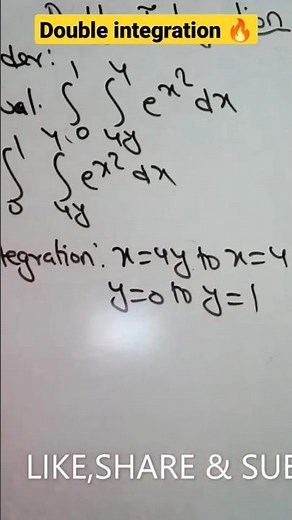 Double integration 🔥
der:
∫₀¹ ∫₄ᵧ⁴ eˣ² dx
∫₀¹ ∫₄ᵧ eˣ² dx
tegration: x=4y to x=4
y=0 to y=1
LIKE,SHARE & SUB